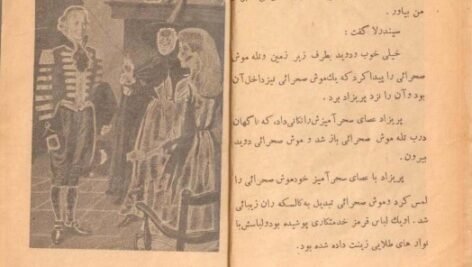 من بیاور .
سیندرلا گفت :
خیلی خوب ودوید بطرف زیر زمین وتله موش
صحرائی را پیدا کرد که یك موش صحرائی نیز داخل آن
بود و آن را نزد پریزاد برد .
پریزاد عصای سحر آمیزش را تکانی داد، که ناگهان
درب تله موش صحرائی باز شد و موش صحرائی دوید
بیرون .
پریزاد با عصای سحر آمیز خود موش صحرائی را
لمس کرد و موش صحرائی تبدیل به کالسکه ران زیبائی
شد . او یك لباس قرمز خدمتکاری پوشیده بود ولباسش با
نوار های طلایی زینت داده شده بود .